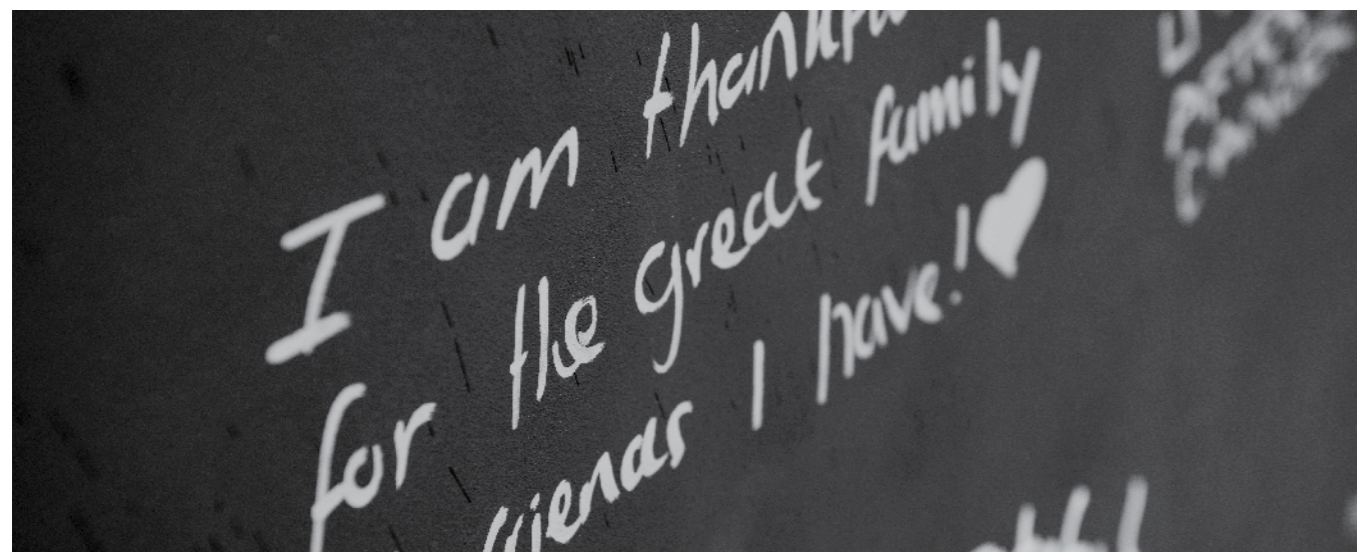 I am thankful
for the great family
friends I have!